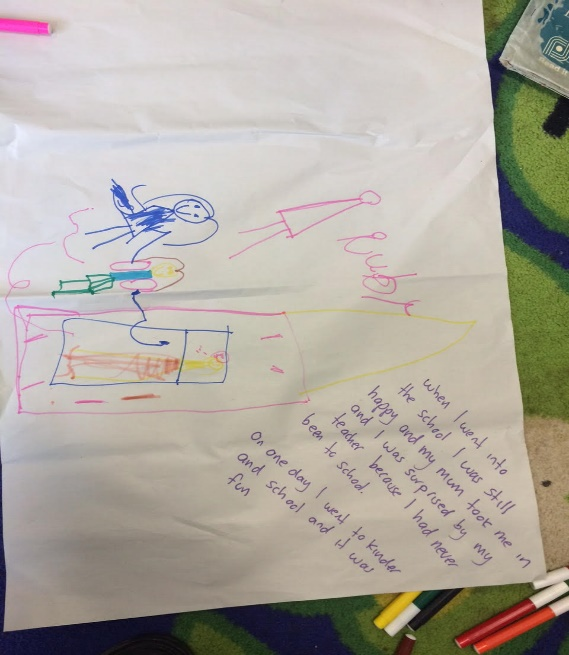 Ruby
When I went into
the school I was still
happy and my mum took me in
and I was surprised by my
teacher because I had never
been to school.
On one day I went to kinder
and school and it was
fun